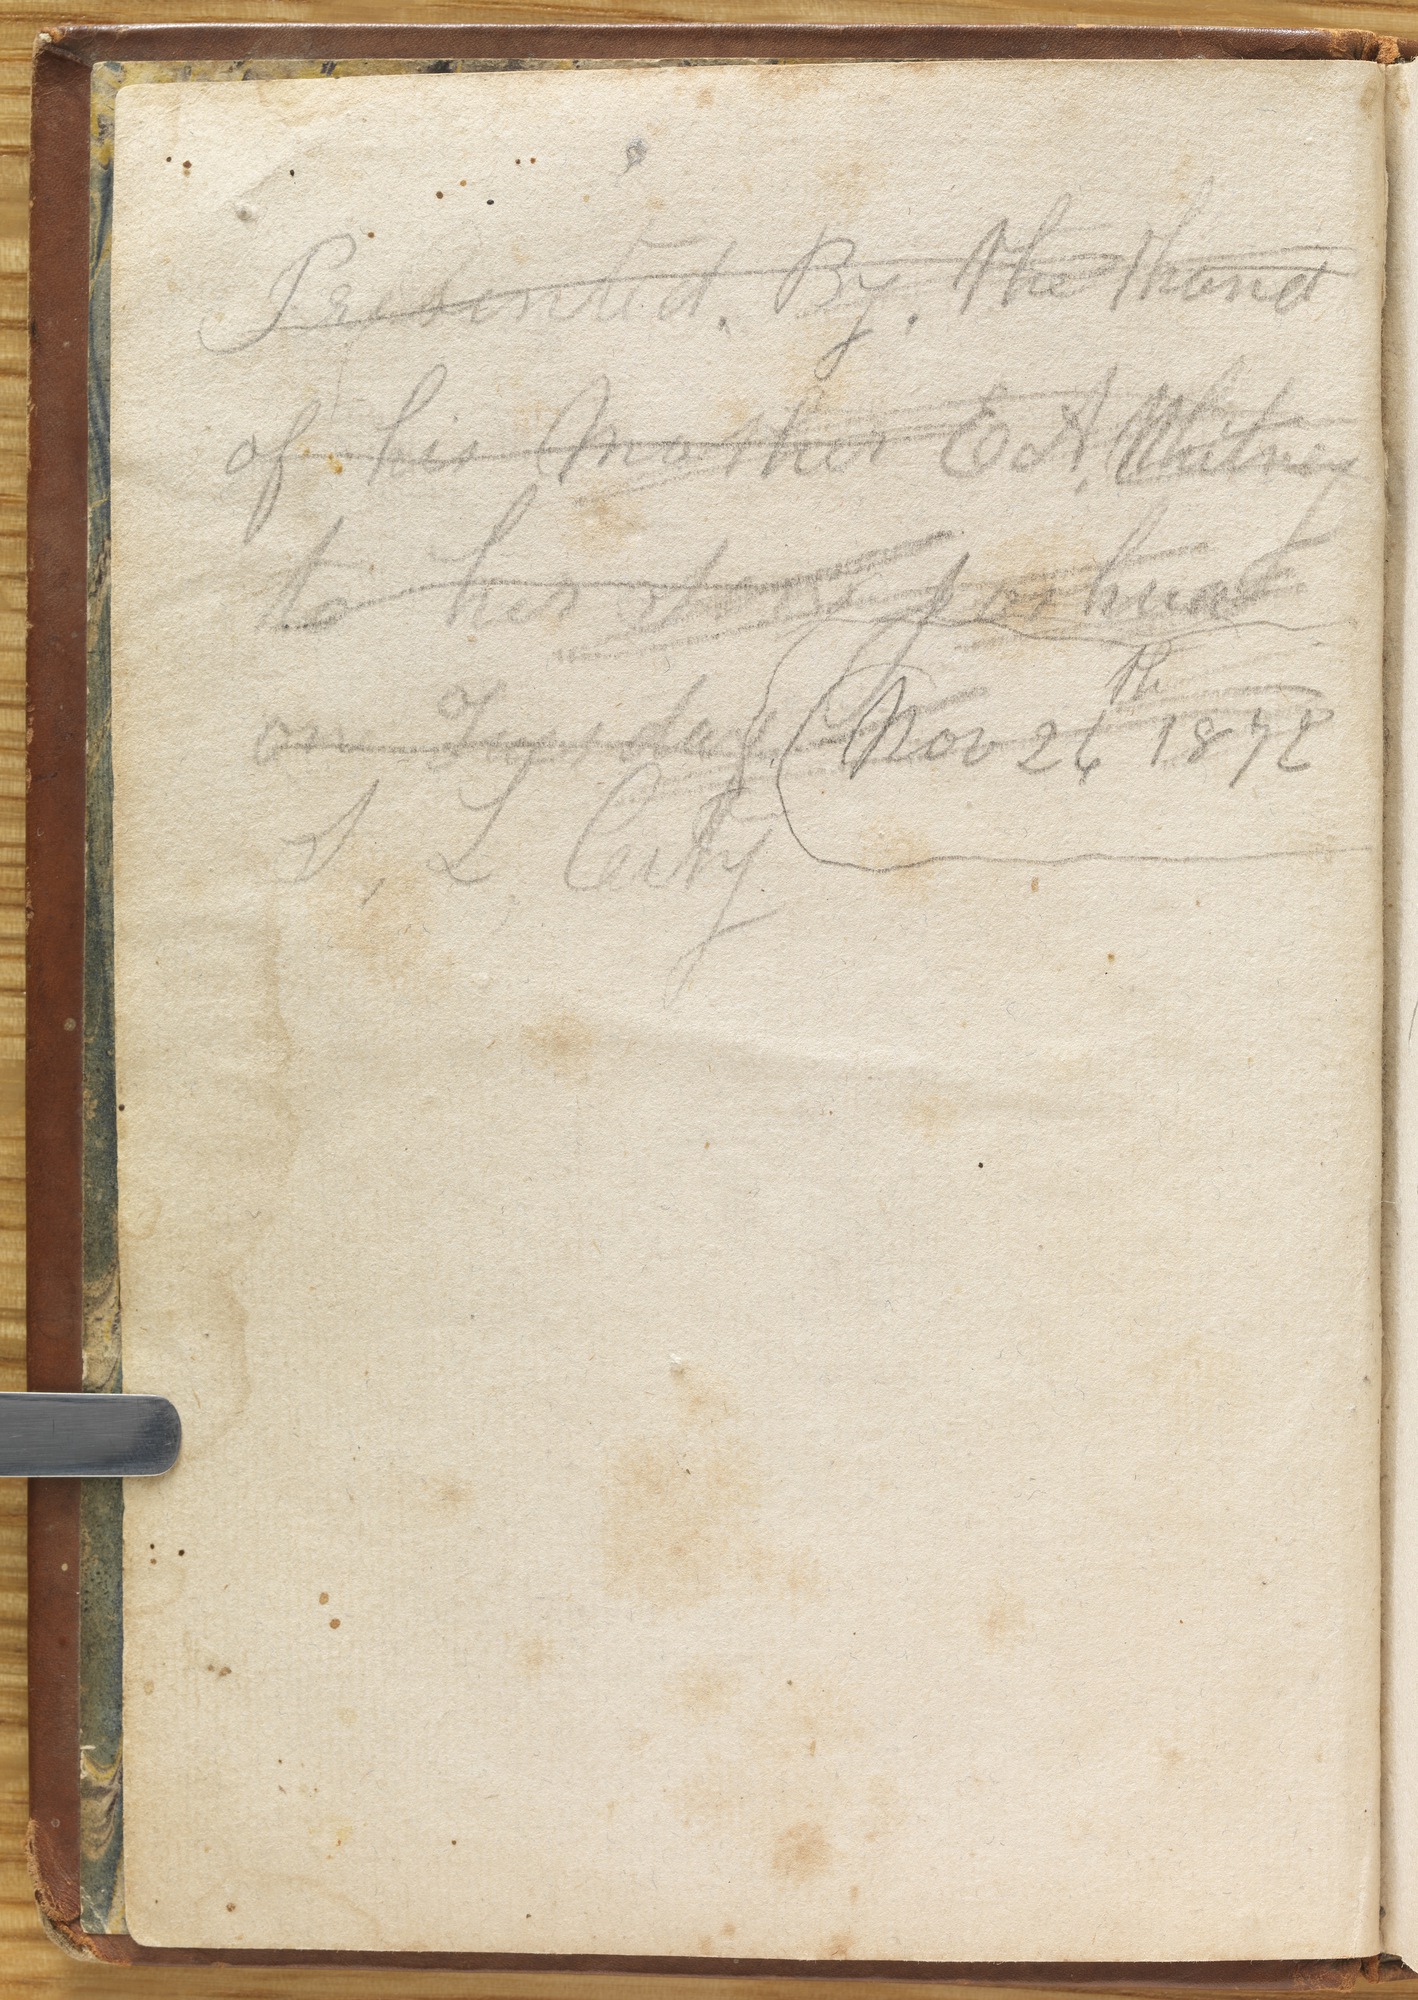 Presented. By. the Hand
of his Mother E A. Whitney
to her son Joshua
on Tuesday Nov 26th 1872
S, L, City